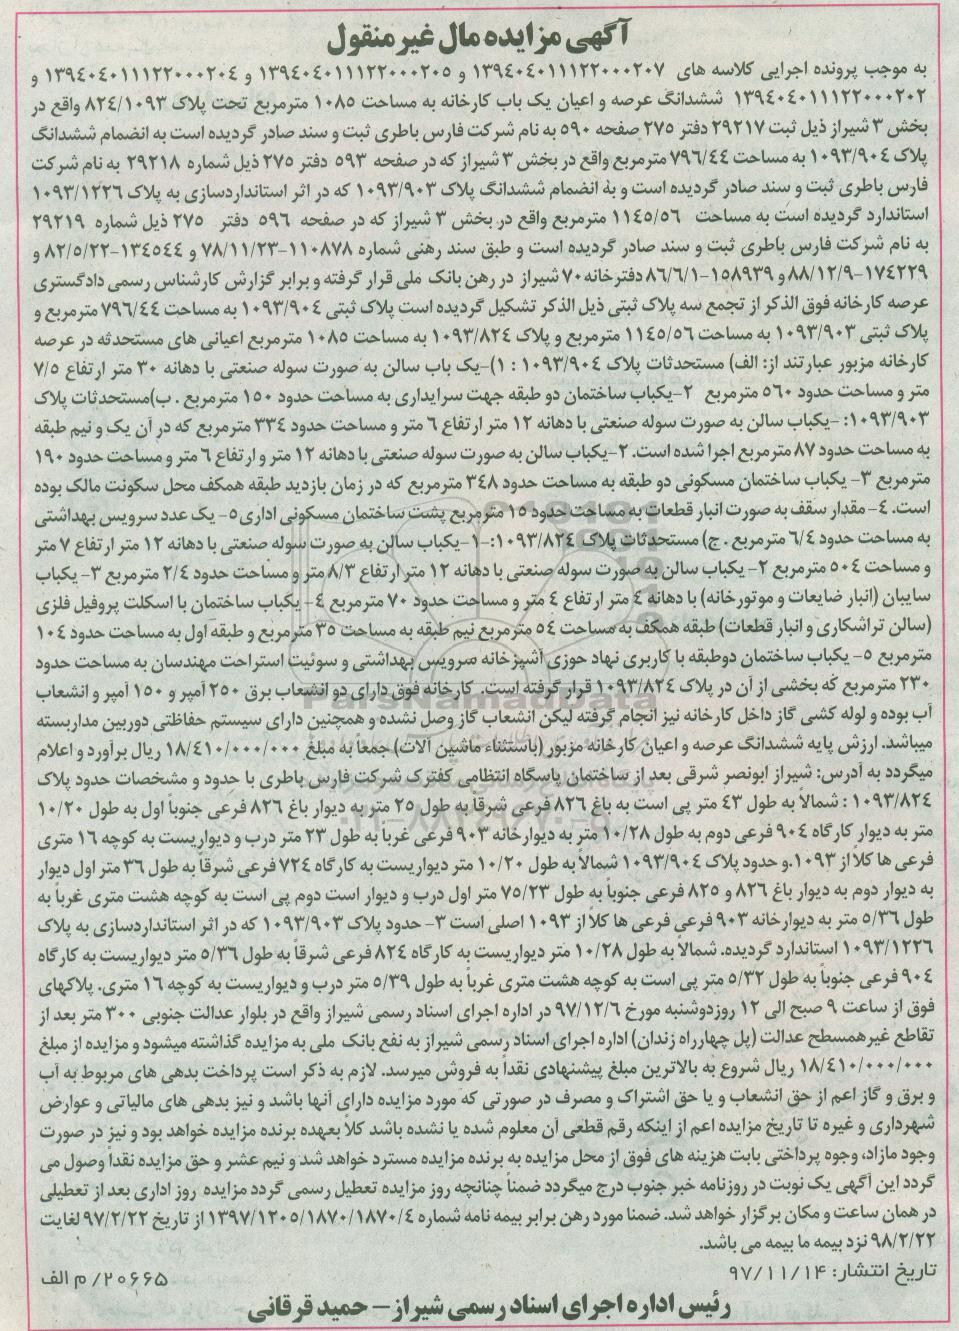 آگهی مزایده مال غیر منقول
به موجب پرونده اجرایی کلاسه های ۱۳۹٤۰٤۰۱۱۱۲۲۰۰۰۲۰۷ و ۱۳۹٤۰٤۰۱۱۱۲۲۰۰۰۲۰۵ و ۱۳۹٤۰٤۰۱۱۱۲۲۰۰۰۲۰٤ و
۱۳۹٤۰٤۰۱۱۱۲۲۰۰۰۲۰۲ ششدانگ عرصه و اعیان یک باب کارخانه به مساحت ۱۰۸۵ مترمربع تحت پلاک ۸۲٤/۱۰۹۳ واقع در
بخش ۳ شیراز ذیل ثبت ۲۹۲۱۷ دفتر ۲۷۵ صفحه ۵۹۰ به نام شرکت فارس باطری ثبت و سند صادر گردیده است به انضمام ششدانگ
پلاک ۱۰۹۳/۹۰٤ به مساحت ۷۹٦/٤٤ مترمربع واقع در بخش ۳ شیراز که در صفحه ۵۹۳ دفتر ۲۷۵ ذیل شماره ۲۹۲۱۸ به نام شرکت
فارس باطری ثبت و سند صادر گردیده است و به انضمام ششدانگ پلاک ۱۰۹۳/۹۰۳ که در اثر استانداردسازی به پلاک ۱۰۹۳/۱۲۲٦
استاندارد گردیده است به مساحت ۱۱٤۵/۵٦ مترمربع واقع در بخش ۳ شیراز که در صفحه ۵۹٦ دفتر ۲۷۵ ذیل شماره ۲۹۲۱۹
به نام شرکت فارس باطری ثبت و سند صادر گردیده است و طبق سند رهنی شماره ۱۱۰۸۷۸-۷۸/۱۱/۲۳ و ۱۳٤۵٤٤-۸۲/۵/۲۲ و
۱۷٤۲۲۹-۸۸/۱۲/۹ و ۱۵۸۹۳۹-۸٦/٦/۱ دفترخانه ۷۰ شیراز در رهن بانک ملی قرار گرفته و برابر گزارش کارشناس رسمی دادگستری
عرصه کارخانه فوق الذکر از تجمع سه پلاک ثبتی ذیل الذکر تشکیل گردیده است پلاک ثبتی ۱۰۹۳/۹۰٤ به مساحت ۷۹٦/٤٤ مترمربع و
پلاک ثبتی ۱۰۹۳/۹۰۳ به مساحت ۱۱٤۵/۵٦ مترمربع و پلاک ۱۰۹۳/۸۲٤ به مساحت ۱۰۸۵ مترمربع اعیانی های مستحدثه در عرصه
کارخانه مزبور عبارتند از: الف) مستحدثات پلاک ۱۰۹۳/۹۰٤ : ۱)-یک باب سالن به صورت سوله صنعتی با دهانه ۳۰ متر ارتفاع ۷/۵
متر و مساحت حدود ۵٦۰ مترمربع ۲-یکباب ساختمان دو طبقه جهت سرایداری به مساحت حدود ۱۵۰ مترمربع . ب)مستحدثات پلاک
۱۰۹۳/۹۰۳: -یکباب سالن به صورت سوله صنعتی با دهانه ۱۲ متر ارتفاع ٦ متر و مساحت حدود ۳۳٤ مترمربع که در آن یک و نیم طبقه
به مساحت حدود ۸۷ مترمربع اجرا شده است. ۲-یکباب سالن به صورت سوله صنعتی با دهانه ۱۲ متر و ارتفاع ٦ متر و مساحت حدود ۱۹۰
مترمربع ۳- یکباب ساختمان مسکونی دو طبقه به مساحت حدود ۳٤۸ مترمربع که در زمان بازدید طبقه همکف محل سکونت مالک بوده
است. ٤- مقدار سقف به صورت انبار قطعات به مساحت حدود ۱۵ مترمربع پشت ساختمان مسکونی اداری ۵- یک عدد سرویس بهداشتی
به مساحت حدود ٦/٤ مترمربع . ج) مستحدثات پلاک ۱۰۹۳/۸۲٤:-۱-یکباب سالن به صورت سوله صنعتی با دهانه ۱۲ متر ارتفاع ۷ متر
و مساحت ۵۰٤ مترمربع ۲- یکباب سالن به صورت سوله صنعتی با دهانه ۱۲ متر ارتفاع ۸/۳ متر و مساحت حدود ۲/٤ مترمربع ۳- یکباب
سایبان (انبار ضایعات و موتورخانه) با دهانه ٤ متر ارتفاع ٤ متر و مساحت حدود ۷۰ مترمربع ٤- یکباب ساختمان با اسکلت پروفیل فلزی
(سالن تراشکاری و انبار قطعات) طبقه همکف به مساحت ۵٤ مترمربع نیم طبقه به مساحت ۳۵ مترمربع و طبقه اول به مساحت حدود ۱۰٤
مترمربع ۵- یکباب ساختمان دوطبقه با کاربری نهاد حوزی آشپزخانه سرویس بهداشتی و سوئیت استراحت مهندسان به مساحت حدود
۲۳۰ مترمربع که بخشی از آن در پلاک ۱۰۹۳/۸۲٤ قرار گرفته است. کارخانه فوق دارای دو انشعاب برق ۲۵۰ آمپر و ۱۵۰ آمپر و انشعاب
آب بوده و لوله کشی گاز داخل کارخانه نیز انجام گرفته لیکن انشعاب گاز وصل نشده و همچنین دارای سیستم حفاظتی دوربین مداربسته
میباشد. ارزش پایه ششدانگ عرصه و اعیان کارخانه مزبور (باستثناء ماشین آلات) جمعاً به مبلغ ۱۸/٤۱۰/۰۰۰/۰۰۰ ریال برآورد و اعلام
میگردد به آدرس: شیراز ابونصر شرقی بعد از ساختمان پاسگاه انتظامی کفترک شرکت فارس باطری با حدود و مشخصات حدود پلاک
۱۰۹۳/۸۲٤ : شمالاً به طول ٤۳ متر پی است به باغ ۸۲٦ فرعی شرقاً به طول ۲۵ متر به دیوار باغ ۸۲٦ فرعی جنوباً اول به طول ۱۰/۲۰
متر به دیوار کارگاه ۹۰٤ فرعی دوم به طول ۱۰/۲۸ متر به دیوارخانه ۹۰۳ فرعی غرباً به طول ۲۳ متر درب و دیواریست به کوچه ۱٦ متری
فرعی ها کلاً از ۱۰۹۳ .و حدود پلاک ۱۰۹۳/۹۰٤ شمالاً به طول ۱۰/۲۰ متر دیواریست به کارگاه ۷۲٤ فرعی شرقاً به طول ۳٦ متر اول دیوار
به دیوار دوم به دیوار باغ ۸۲٦ و ۸۲۵ فرعی جنوباً به طول ۷۵/۲۳ متر اول درب و دیوار است دوم پی است به کوچه هشت متری غرباً به
طول ۵/۳٦ متر به دیوارخانه ۹۰۳ فرعی فرعی ها کلاً از ۱۰۹۳ اصلی است ۳- حدود پلاک ۱۰۹۳/۹۰۳ که در اثر استانداردسازی به پلاک
۱۰۹۳/۱۲۲٦ استاندارد گردیده. شمالاً به طول ۱۰/۲۸ متر دیواریست به کارگاه ۸۲٤ فرعی شرقاً به طول ۵/۳٦ متر دیواریست به کارگاه
۹۰٤ فرعی جنوباً به طول ۵/۳۲ متر پی است به کوچه هشت متری غرباً به طول ۵/۳۹ متر درب و دیواریست به کوچه ۱٦ متری. پلاکهای
فوق از ساعت ۹ صبح الی ۱۲ روزدوشنبه مورخ ۹۷/۱۲/٦ در اداره اجرای اسناد رسمی شیراز واقع در بلوار عدالت جنوبی ۳۰۰ متر بعد از
تقاطع غیرهمسطح عدالت (پل چهارراه زندان) اداره اجرای اسناد رسمی شیراز به نفع بانک ملی به مزایده گذاشته میشود و مزایده از مبلغ
۱۸/٤۱۰/۰۰۰/۰۰۰ ریال شروع به بالاترین مبلغ پیشنهادی نقداً به فروش میرسد. لازم به ذکر است پرداخت بدهی های مربوط به آب
و برق و گاز اعم از حق انشعاب و یا حق اشتراک و مصرف در صورتی که مورد مزایده دارای آنها باشد و نیز بدهی های مالیاتی و عوارض
شهرداری و غیره تا تاریخ مزایده اعم از اینکه رقم قطعی آن معلوم شده یا نشده باشد کلاً بعهده برنده مزایده خواهد بود و نیز در صورت
وجود مازاد، وجوه پرداختی بابت هزینه های فوق از محل مزایده به برنده مزایده مسترد خواهد شد و نیم عشر و حق مزایده نقداً وصول می
گردد این آگهی یک نوبت در روزنامه خبر جنوب درج میگردد ضمناً چنانچه روز مزایده تعطیل رسمی گردد مزایده روز اداری بعد از تعطیلی
در همان ساعت و مکان برگزار خواهد شد. ضمنا مورد رهن برابر بیمه نامه شماره ۱۳۹۷/۱۲۰۵/۱۸۷۰/۱۸۷۰/٤ از تاریخ ۹۷/۲/۲۲ لغایت
۹۸/۲/۲۲ نزد بیمه ما بیمه می باشد.
تاریخ انتشار: ۹۷/۱۱/۱۴
۲۰۶۶۵/ م الف
رئیس اداره اجرای اسناد رسمی شیراز – حمید فرقانی
ParsNamadData